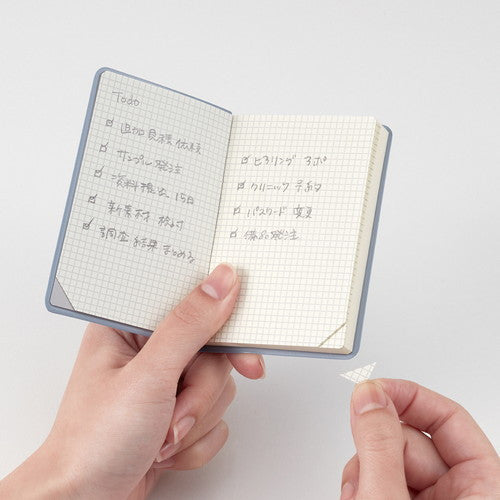 Todo
☑ 追加見積依頼
☑ サンプル発注
☑ 資料提出 15日
☑ 新素材 検討
☑ 調査結果まとめる
☑ ヒアリング
☑ クリニック予約
☑ パスワード変更
☑ 備品発注